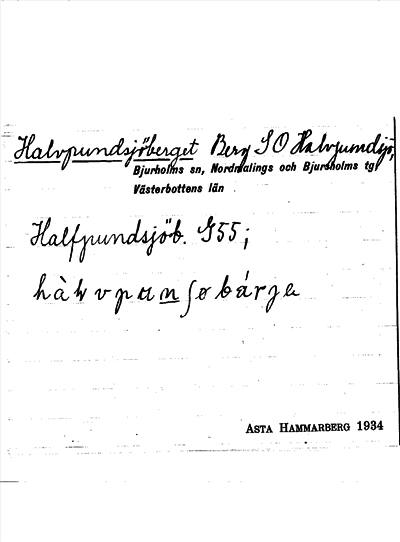 Halvpundsjöberget Berg S O Halvpundsjö,
Bjurholms sn, Nordmalings och Bjursholms tgl
Västerbottens län
Halfpundsjöb. G55;
hàlvpunʃøbárjɐ
ASTA HAMMARBERG 1934